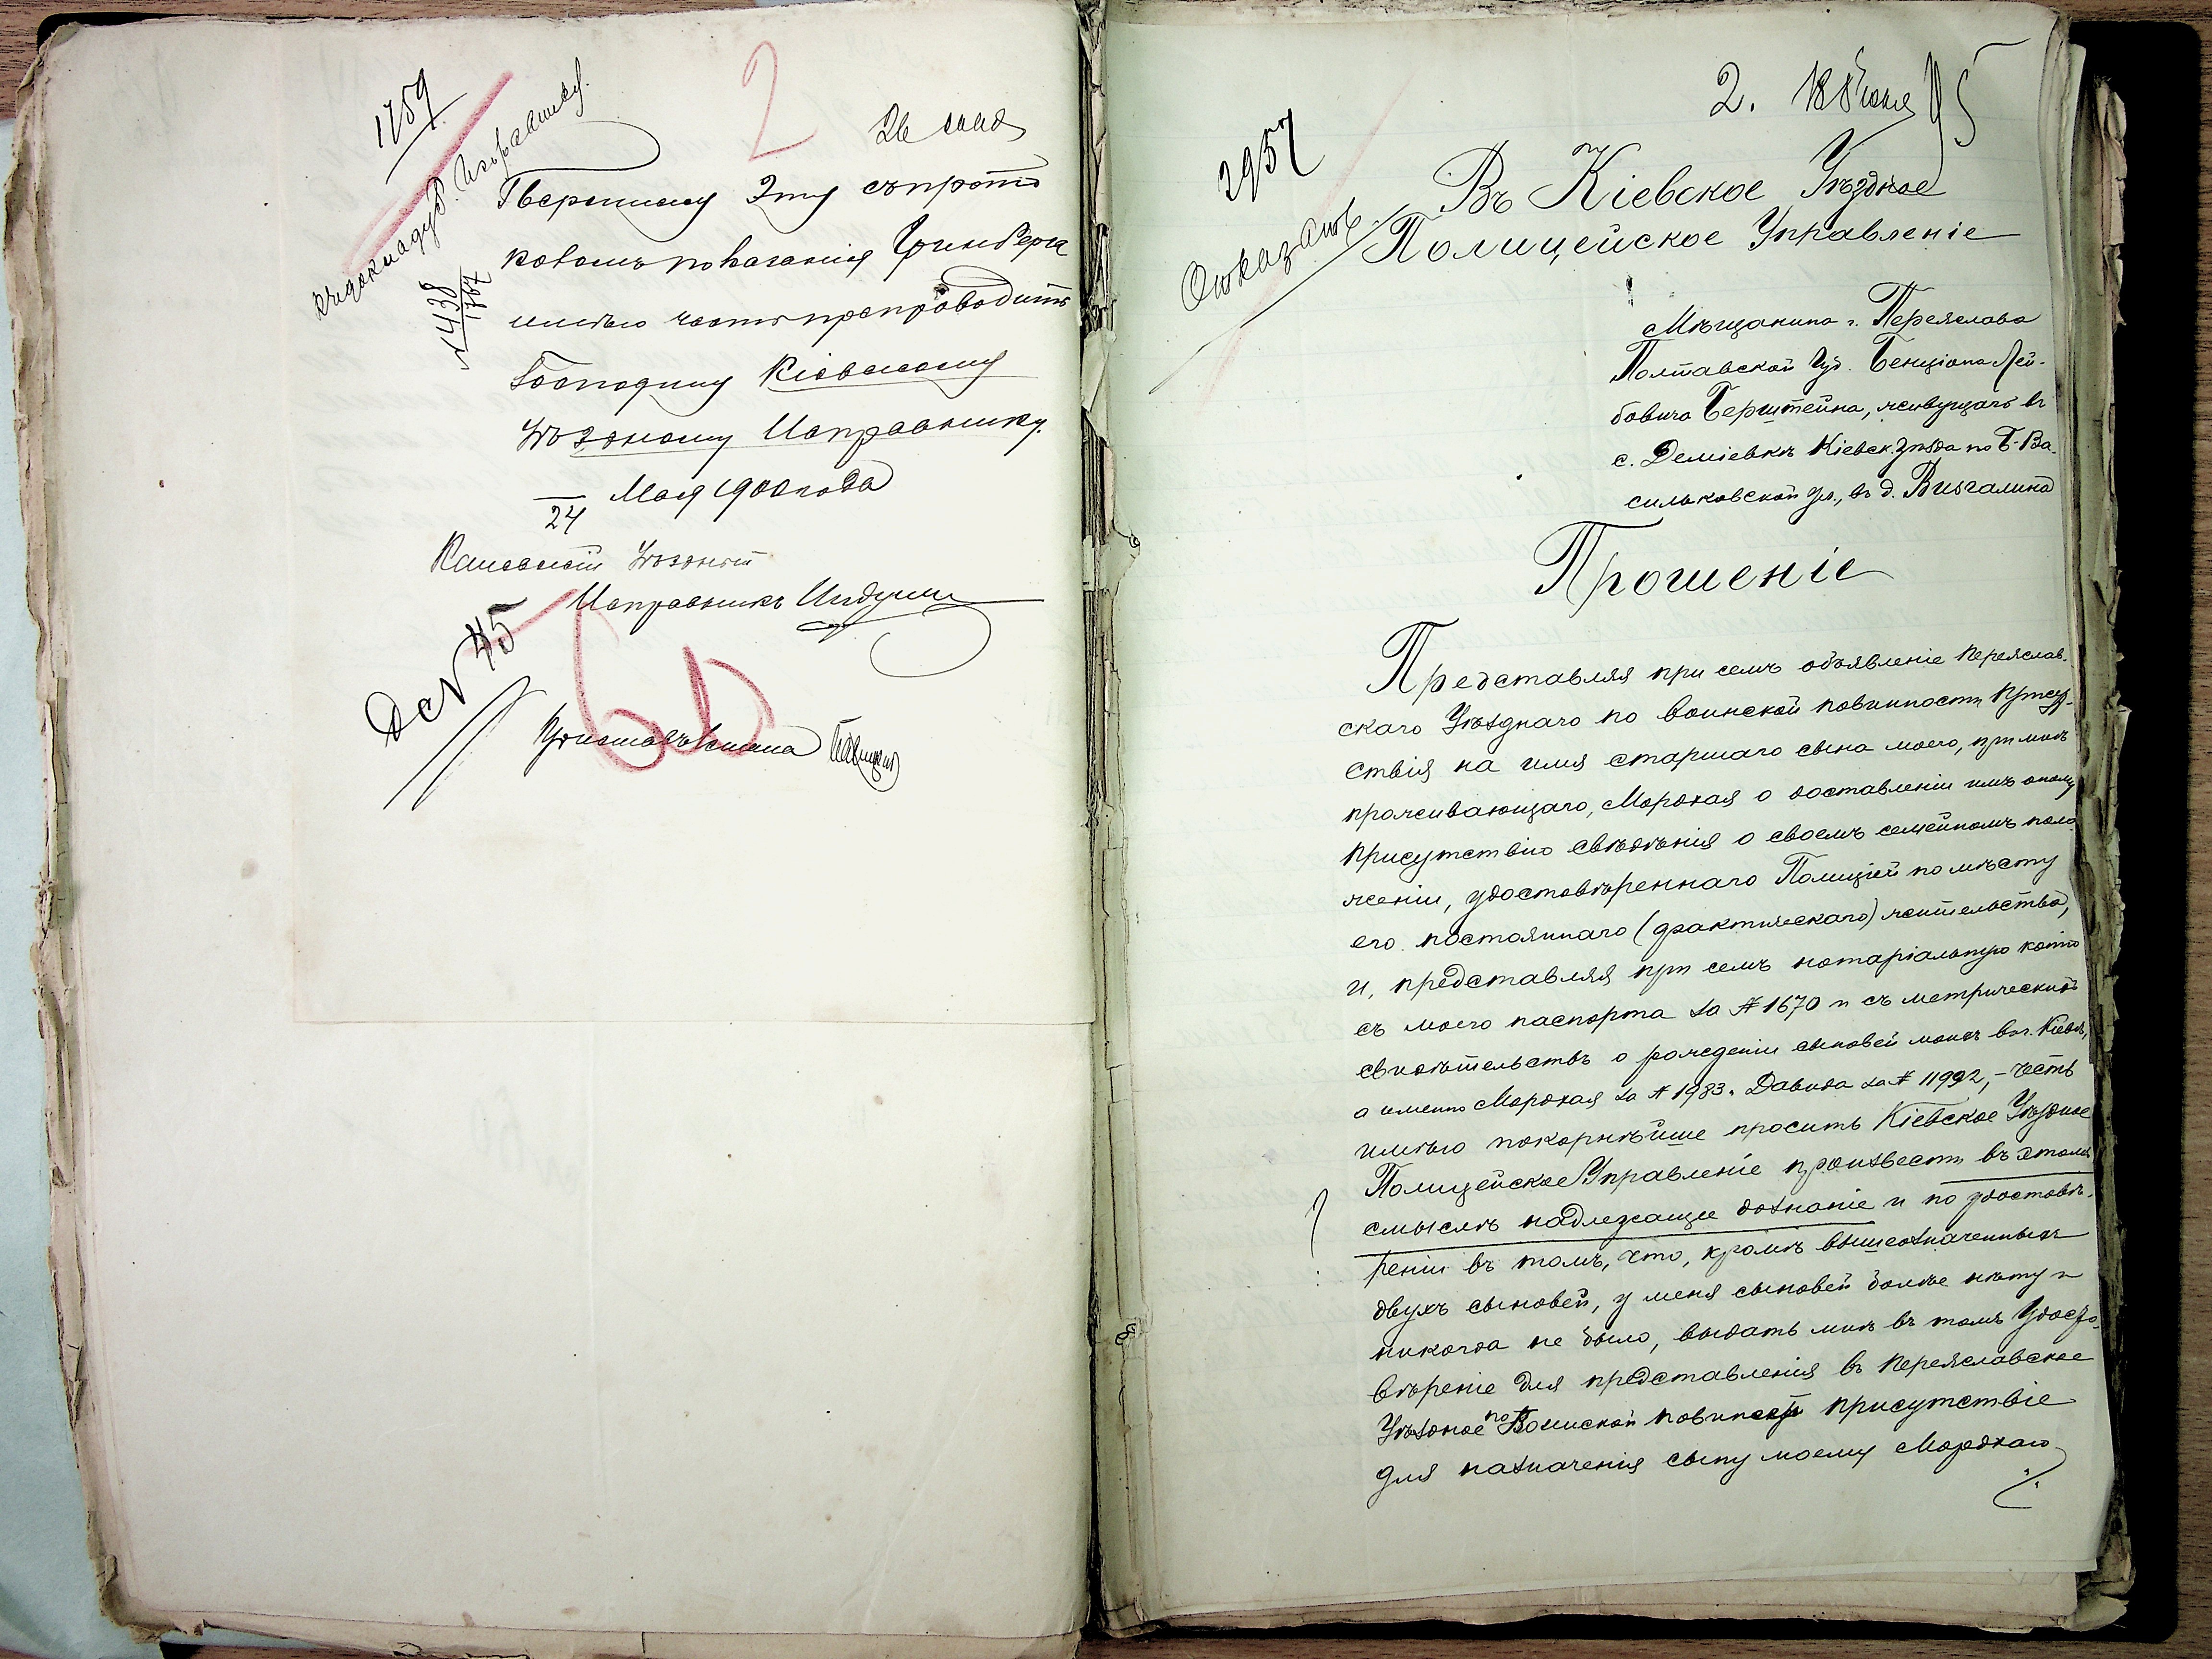 1759
къ докладу Г. Исправнику.
2
26 мая
№ 1438
Переписку эту съ прото
коломъ показанія Гринберга
имѣю честь препроводить
Господину Кіевскому
Уѣздному Исправнику.
24 Мая 1900 года
Каневскій Уѣздный
Исправникъ
№ 45
Приставъ стана
2. 18 Іюня
95
2957
Отказать
Въ Кіевское Уѣздное
Полицейское Управленіе
Мѣщанина г. Переяслава
Полтавской Губ. Бенціона Лей-
бовича Берштейна, живущаго въ
с. Деміевкѣ Кіевск. Уѣзда по Б-Ва-
сильковской ул., въ д.
Прошеніе
Представляя при семъ объявленіе Переяслав-
скаго Уѣзднаго по воинской повинности Присут-
ствія на имя старшаго сына моего, при мнѣ
проживающаго, Мордхая о доставленіи имъ оному
Присутствію свѣдѣнія о своемъ семейномъ поло-
женіи, удостовѣреннаго Полиціей по мѣсту
его постояннаго (фактическаго) жительства,
и, представляя при семъ нотаріальную копію
съ моего паспорта за № 1670 и съ метрическихъ
свидѣтельствъ о рожденіи сыновей моихъ въ г. Кіевѣ,
а именно Мордхая за № 1983 и Давида за № 11992, – честь
имѣю покорнѣйше просить Кіевское Уѣздное
Полицейское Управленіе произвести въ этомъ
смыслѣ надлежащее дознаніе и по удостовѣ-
реніи въ томъ, что, кромѣ вышеозначенныхъ
двухъ сыновей, у меня сыновей болѣе нѣту и
никогда не было, выдать мнѣ въ томъ удосто-
вѣреніе для представленія въ Переяславское
Уѣздное по Воинской повинности присутствіе
для назначенія сыну моему Мордхаю